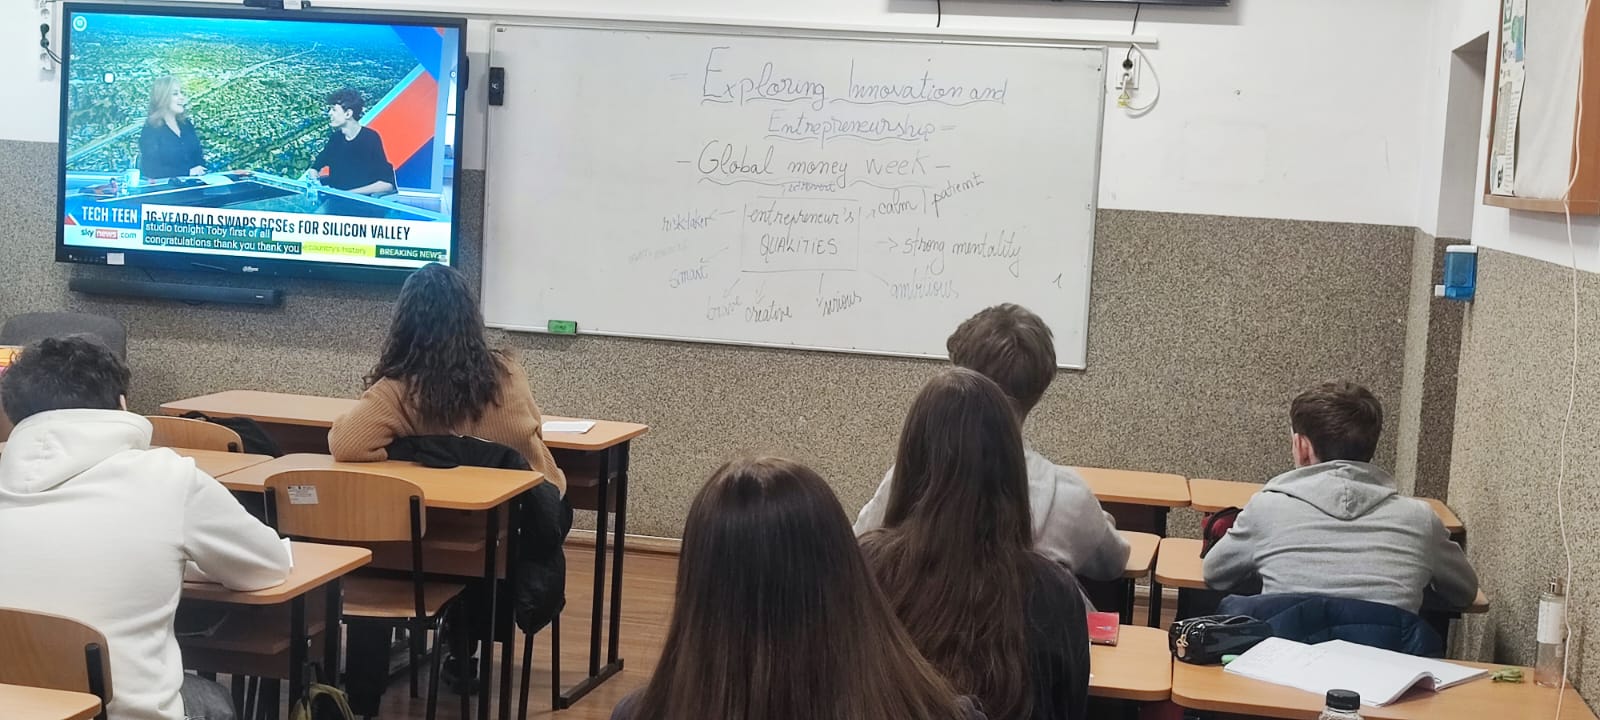 TECH TEEN
16-YEAR-OLD SWAPS GCSEs FOR SILICON VALLEY
studio tonight Toby first of all
congratulations thank you thank you
sky news.com
e country's history
BREAKING NEWS
= Exploring Innovation and
Entrepreneurship =
- Global money week -
extrovert
risk taker
entrepreneur's
QUALITIES
calm / patient
strong mentality
smart
brave
creative
serious
ambitious